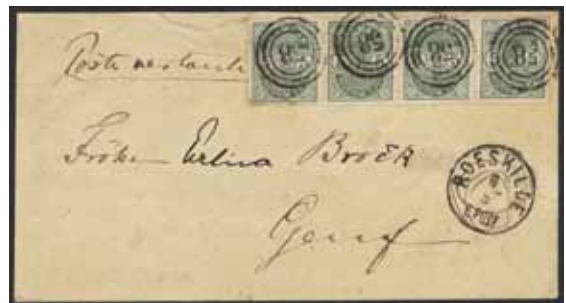 Poste restante
58 58 58 58
Fröken Erlina Brock
ROESKILDE
Genf